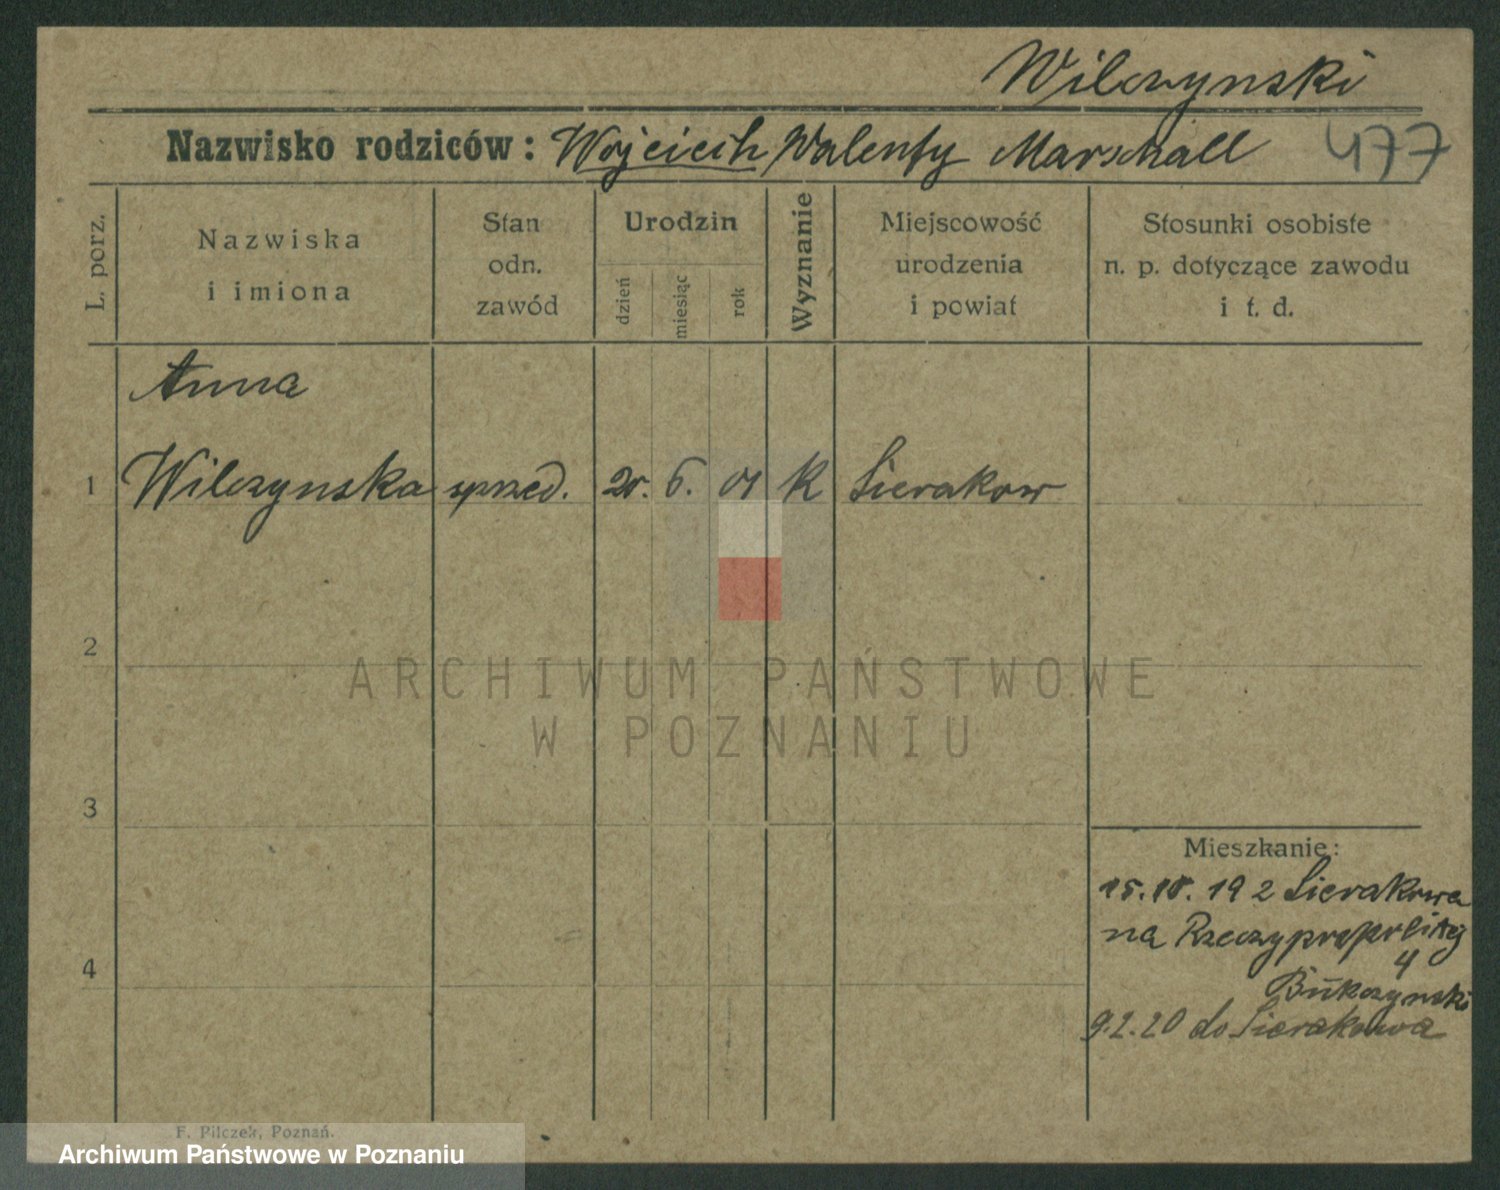 Wilczynski
Nazwisko rodziców: Wojciech Walenty Marschall 477
L. porz.
Nazwiska
i imiona
Stan
odn.
zawód
Urodzin
dzień
miesiąc
rok
Wyznanie
Miejscowość
urodzenia
i powiat
Stosunki osobiste
n. p. dotyczące zawodu
i t. d.
Anna
1 Wilczynska sprzed. 6. 01 K Sierakow
2
ARCHIWUM PAŃSTWOWE
W POZNANIU
3
Mieszkanie:
19 2 Sierakowa
na Rzeczypospolitej
4
4
Bukczynski
9.2.20 do Sierakowa
F. Pilczek, Poznań.
Archiwum Państwowe w Poznaniu